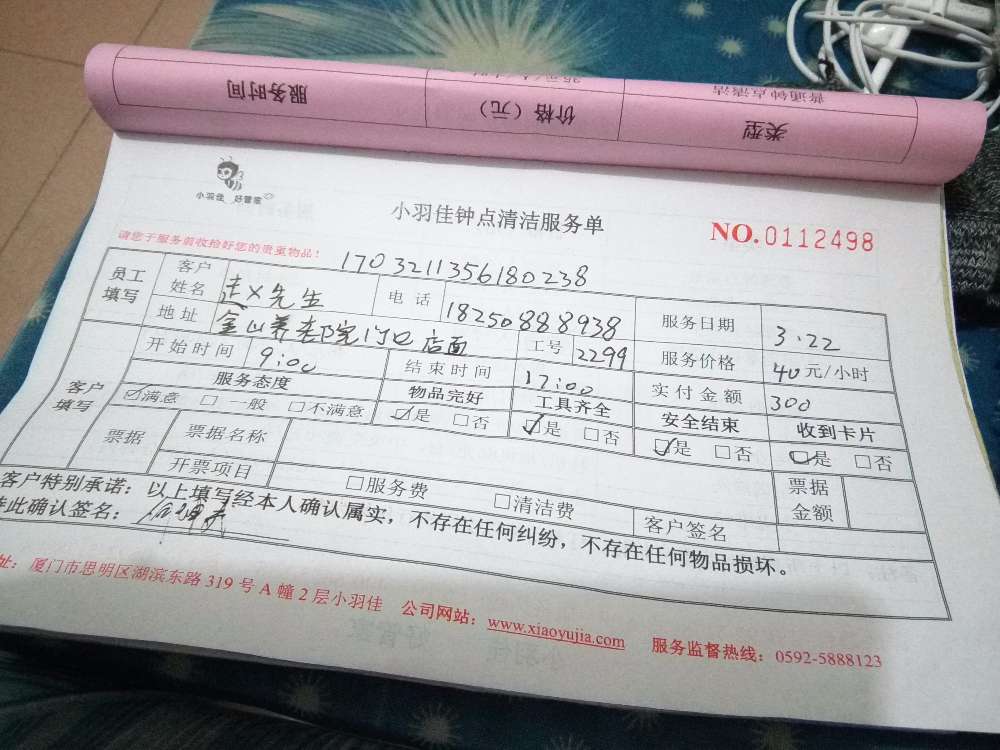 服务时间 价格（元） 类型
普通钟点清洁
小羽佳 好管家
小羽佳钟点清洁服务单
NO.0112498
请您于服务前收拾好您的贵重物品！
1703211356180238
员工填写 客户姓名 先生 电话 18250888938 服务日期 3.22
地址 金山养老院门口店面 工号 2299 服务价格 40元/小时
客户填写 开始时间 9:00 结束时间 17:00 实付金额 300
服务态度 物品完好 工具齐全 安全结束 收到卡片
☑满意 □一般 □不满意 ☑是 □否 ☑是 □否 ☑是 □否 ☑是 □否
票据 票据名称 票据金额
开票项目 □服务费 □清洁费 客户签名
客户特别承诺：以上填写经本人确认属实，不存在任何纠纷，不存在任何物品损坏。
特此确认签名：
址：厦门市思明区湖滨东路319号A幢2层小羽佳 公司网站：www.xiaoyujia.com 服务监督热线：0592-5888123